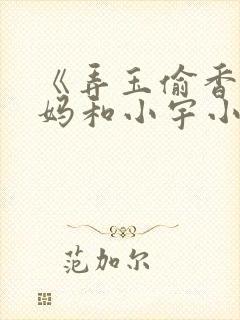 《弄玉偷香
妈和小宇小
范加尔